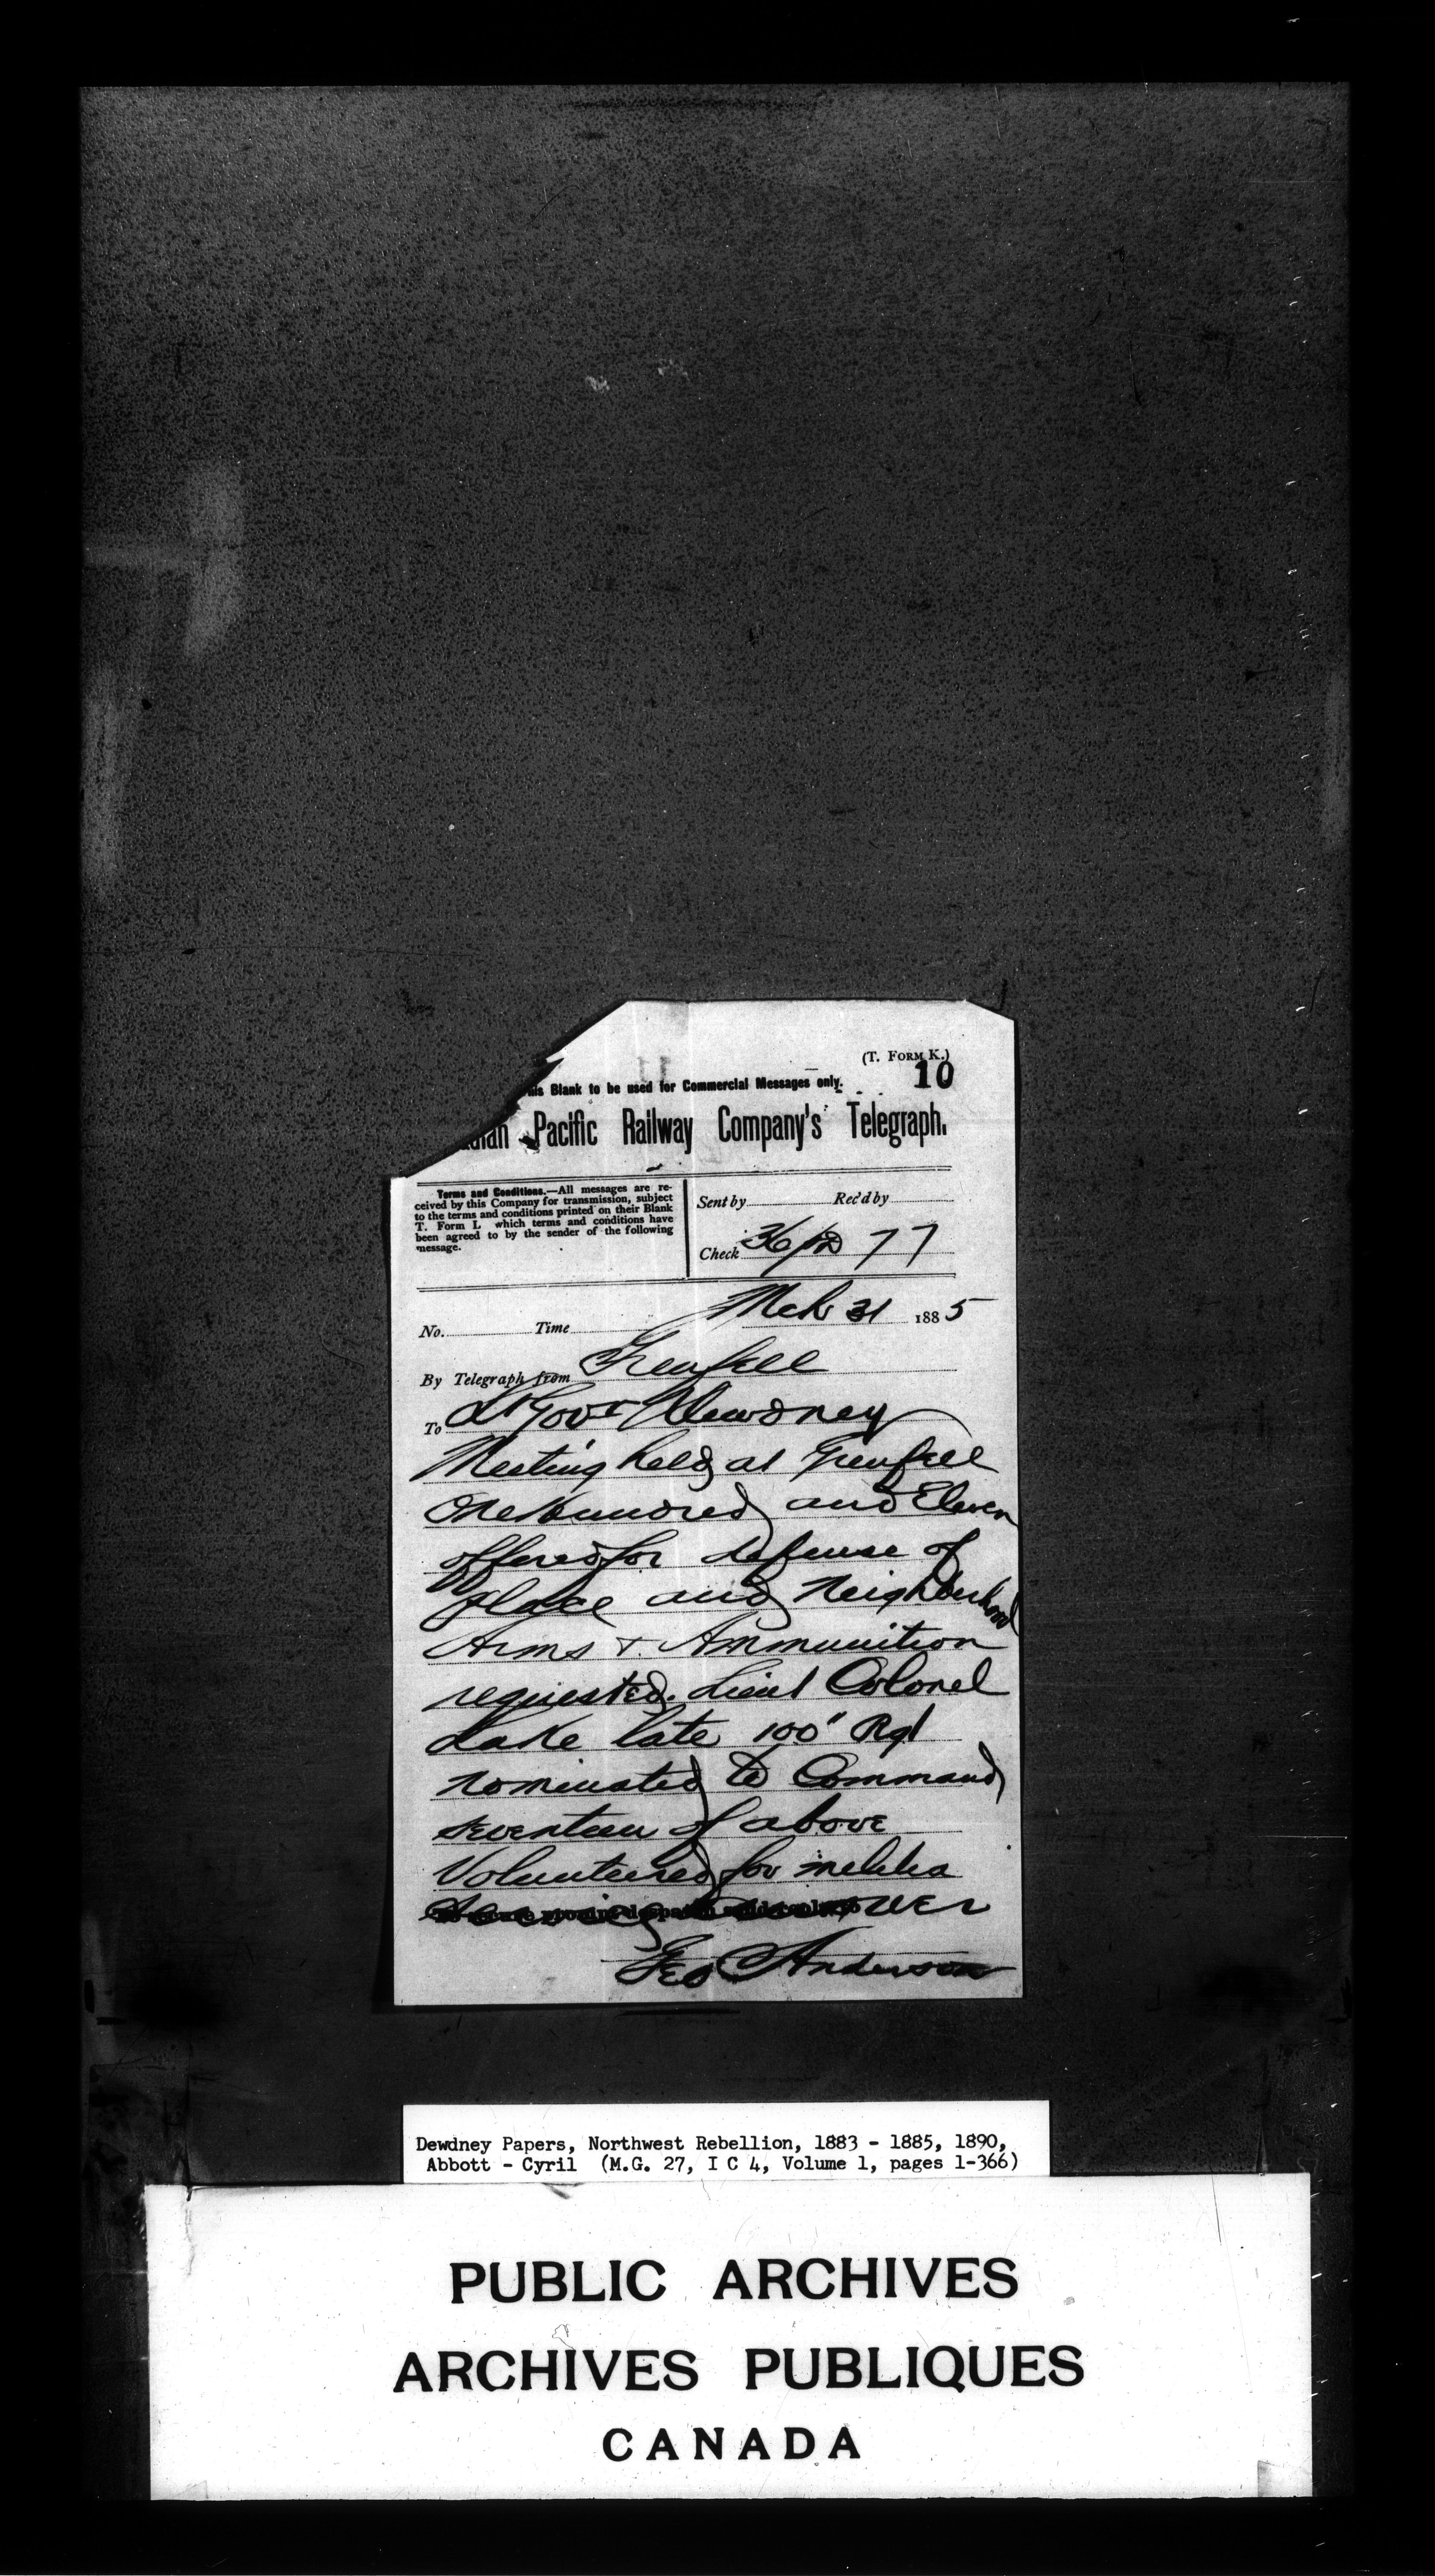 (T. FORM K.)
10
his Blank to be used for Commercial Messages only.
dian Pacific Railway Company's Telegraph.
Terms and Conditions.—All messages are re-
ceived by this Company for transmission, subject
to the terms and conditions printed on their Blank
T. Form I, which terms and conditions have
been agreed to by the sender of the following
message.
Sent by Rec'd by
Check 36 77
Mch 31 1885
No. Time
By Telegraph from Grenfell
To Lt Govr Dewdney
Meeting held at Grenfell
One hundred and Eleven
offered for defense of
place and neighborhood
Arms & Ammunition
requested. Lieut Colonel
Lake late 100" Rgt
nominated to Command
seventeen of above
Volunteered for
Geo Anderson
Dewdney Papers, Northwest Rebellion, 1883 - 1885, 1890,
Abbott - Cyril (M.G. 27, I C 4, Volume 1, pages 1-366)
PUBLIC ARCHIVES
ARCHIVES PUBLIQUES
CANADA